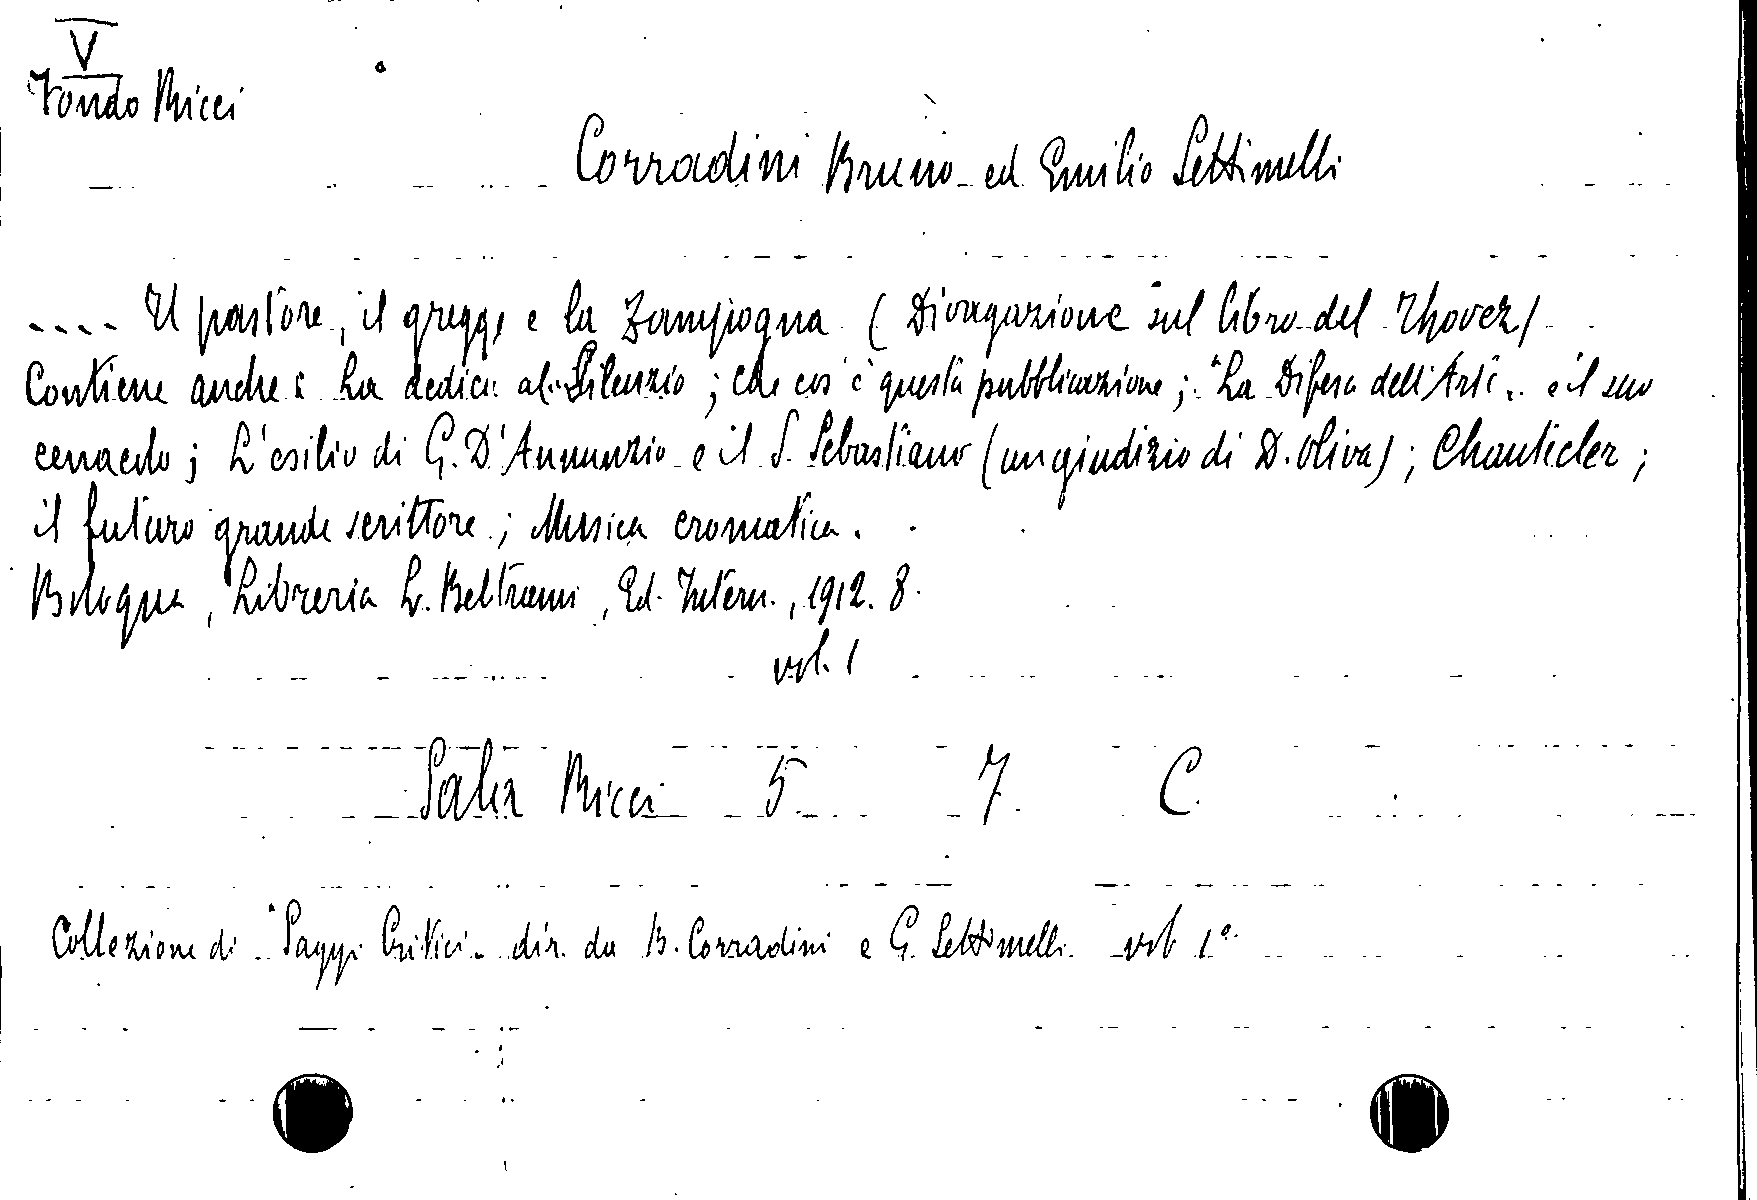 V
Fondo Ricci
Corradini Bruno ed Emilio Settimelli
---- Il pastore, il gregge e la Zampogna (Divagazione sul libro del Thovez)
Contiene anche: La dedica al Silenzio; Che cos'è questa pubblicazione; "La Difesa dell'Arte" e il suo
cenacolo; L'esilio di G. D'Annunzio e il S. Sebastiano (un giudizio di D. Oliva); Chantecler;
il futuro grande scrittore; Musica cromatica.
Bologna, Libreria L. Beltrami, Ed. Intern., 1912. 8.
vol. 1
Sala Ricci 5 7 C
Collezione di "Saggi Critici" dir. da B. Corradini e G. Settimelli vol 1°